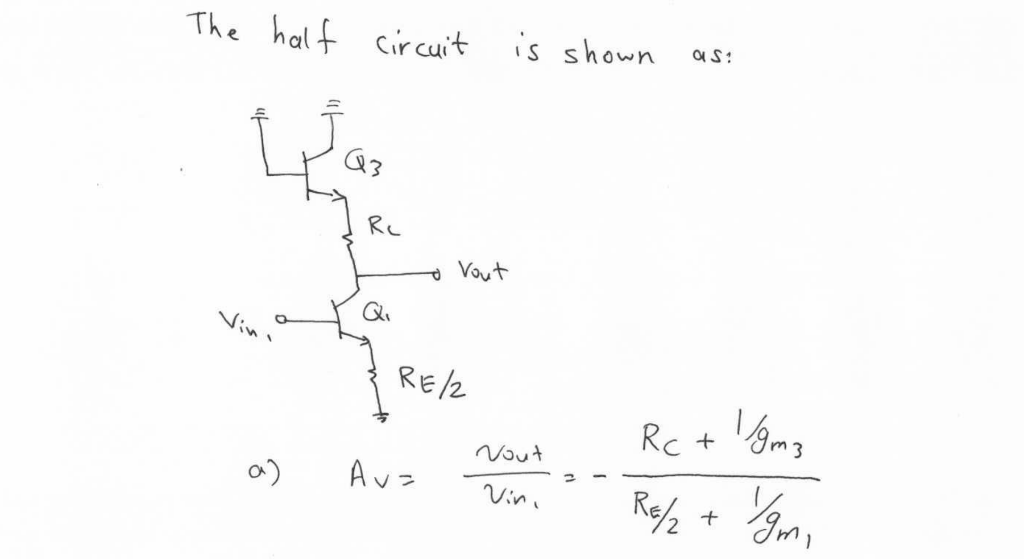 The half circuit is shown as:
Q3
RC
Vout
Vin1
Q1
RE/2
a) Av = Vout / Vin1 = - (RC + 1/gm3) / (RE/2 + 1/gm1)